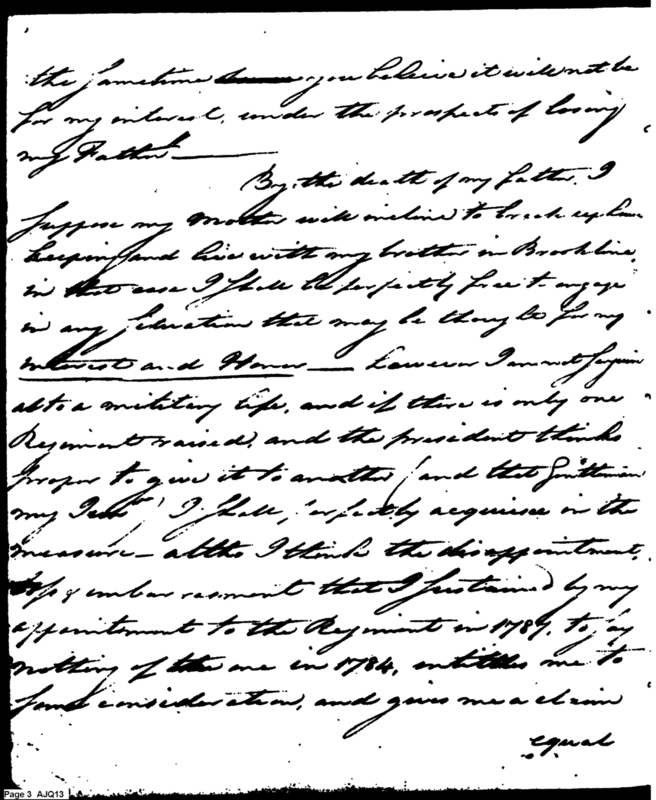 the sametime you beleive it will not be
for my interest, under the prospects of losing
my Father
By the death of my father, I
suppose my Mother will incline to break up house
keeping and live with my brother in Brookline,
in that case I shall be perfectly free to engage
in any that may be thought for my
interest and Honor — however I am not
to a military life, and if there is only one
Regiment raised, and the president thinks
proper to give it to another (and that Gentleman
my ) I shall perfectly acquiesce in the
measure — altho I think the disappointment,
loss & embarrasment that I sustained by my
appointment to the Regiment in 1787, to say
nothing of the one in 1784, entitles me to
some consideration, and gives me a claim
equal
Page 3 AJQ13